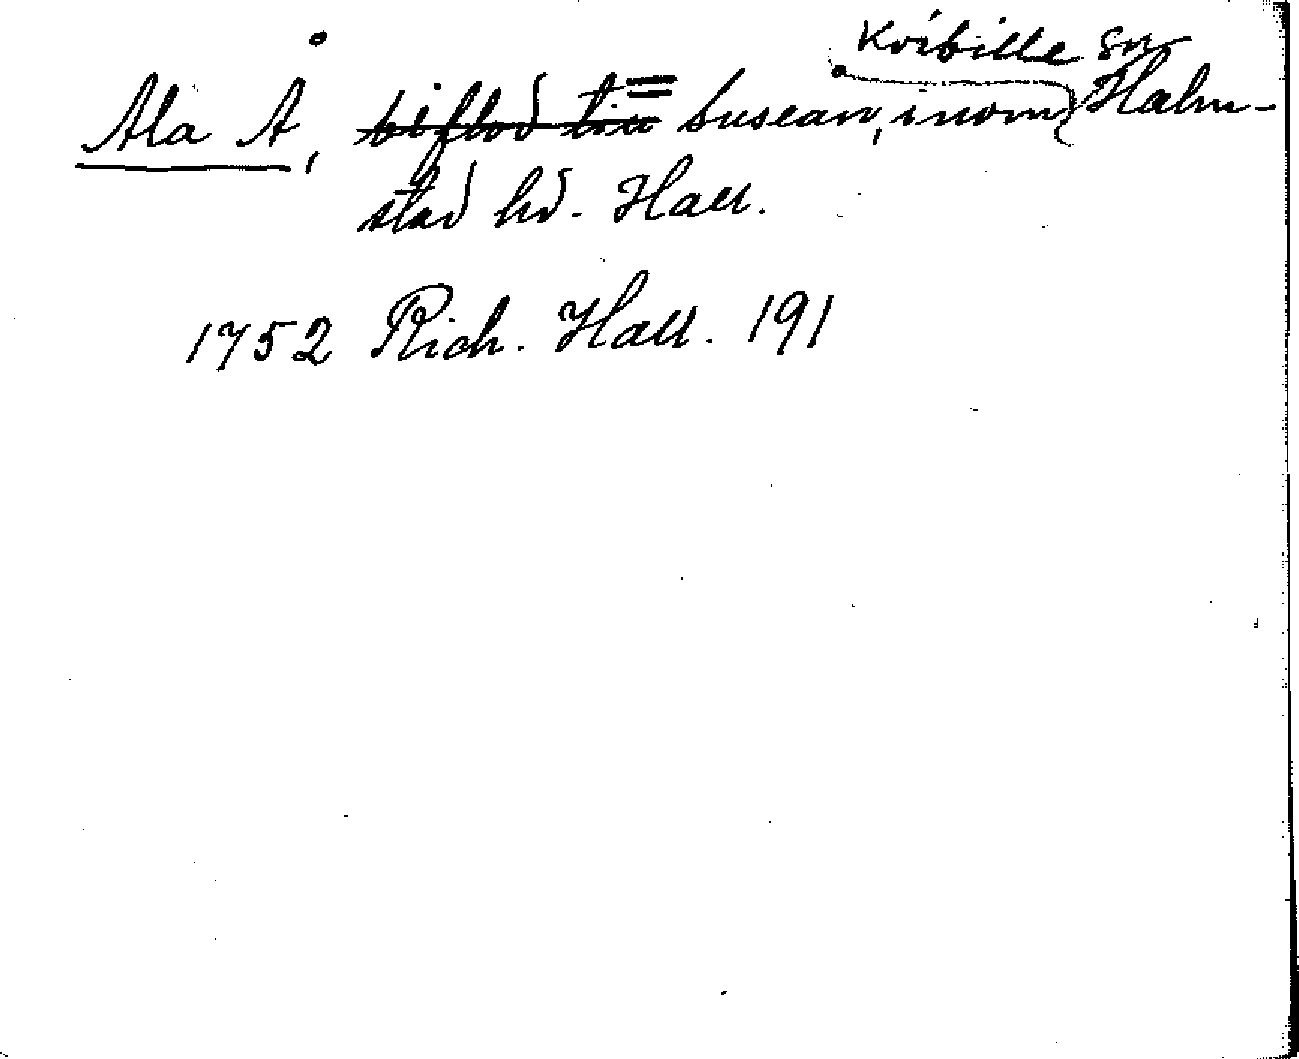 Kvibille sn
Ala Å, biflod till = Suseån, inom Halm-
stad hd. Hall.
1752 Rich. Hall. 191